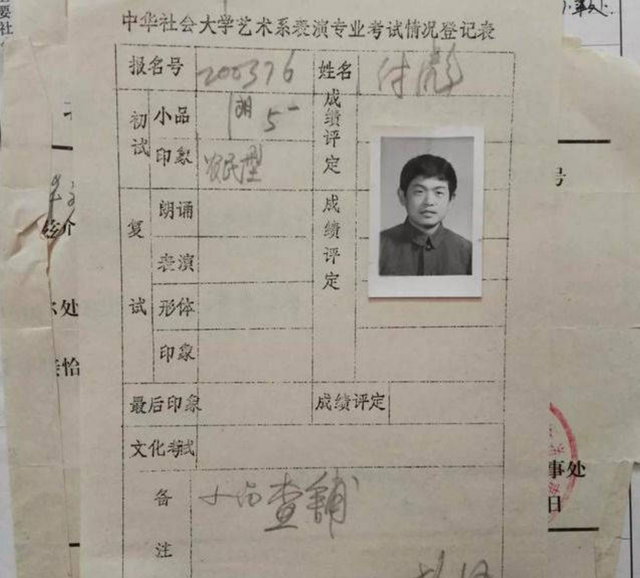 中华社会大学艺术系表演专业考试情况登记表
报名号 200376 姓名 付彪
初试 小品 5 成绩评定
印象 农民型
复试 朗诵 成绩评定
表演
形体
印象
最后印象 成绩评定
文化考试
备注 小品查铺
号
处
事处
日